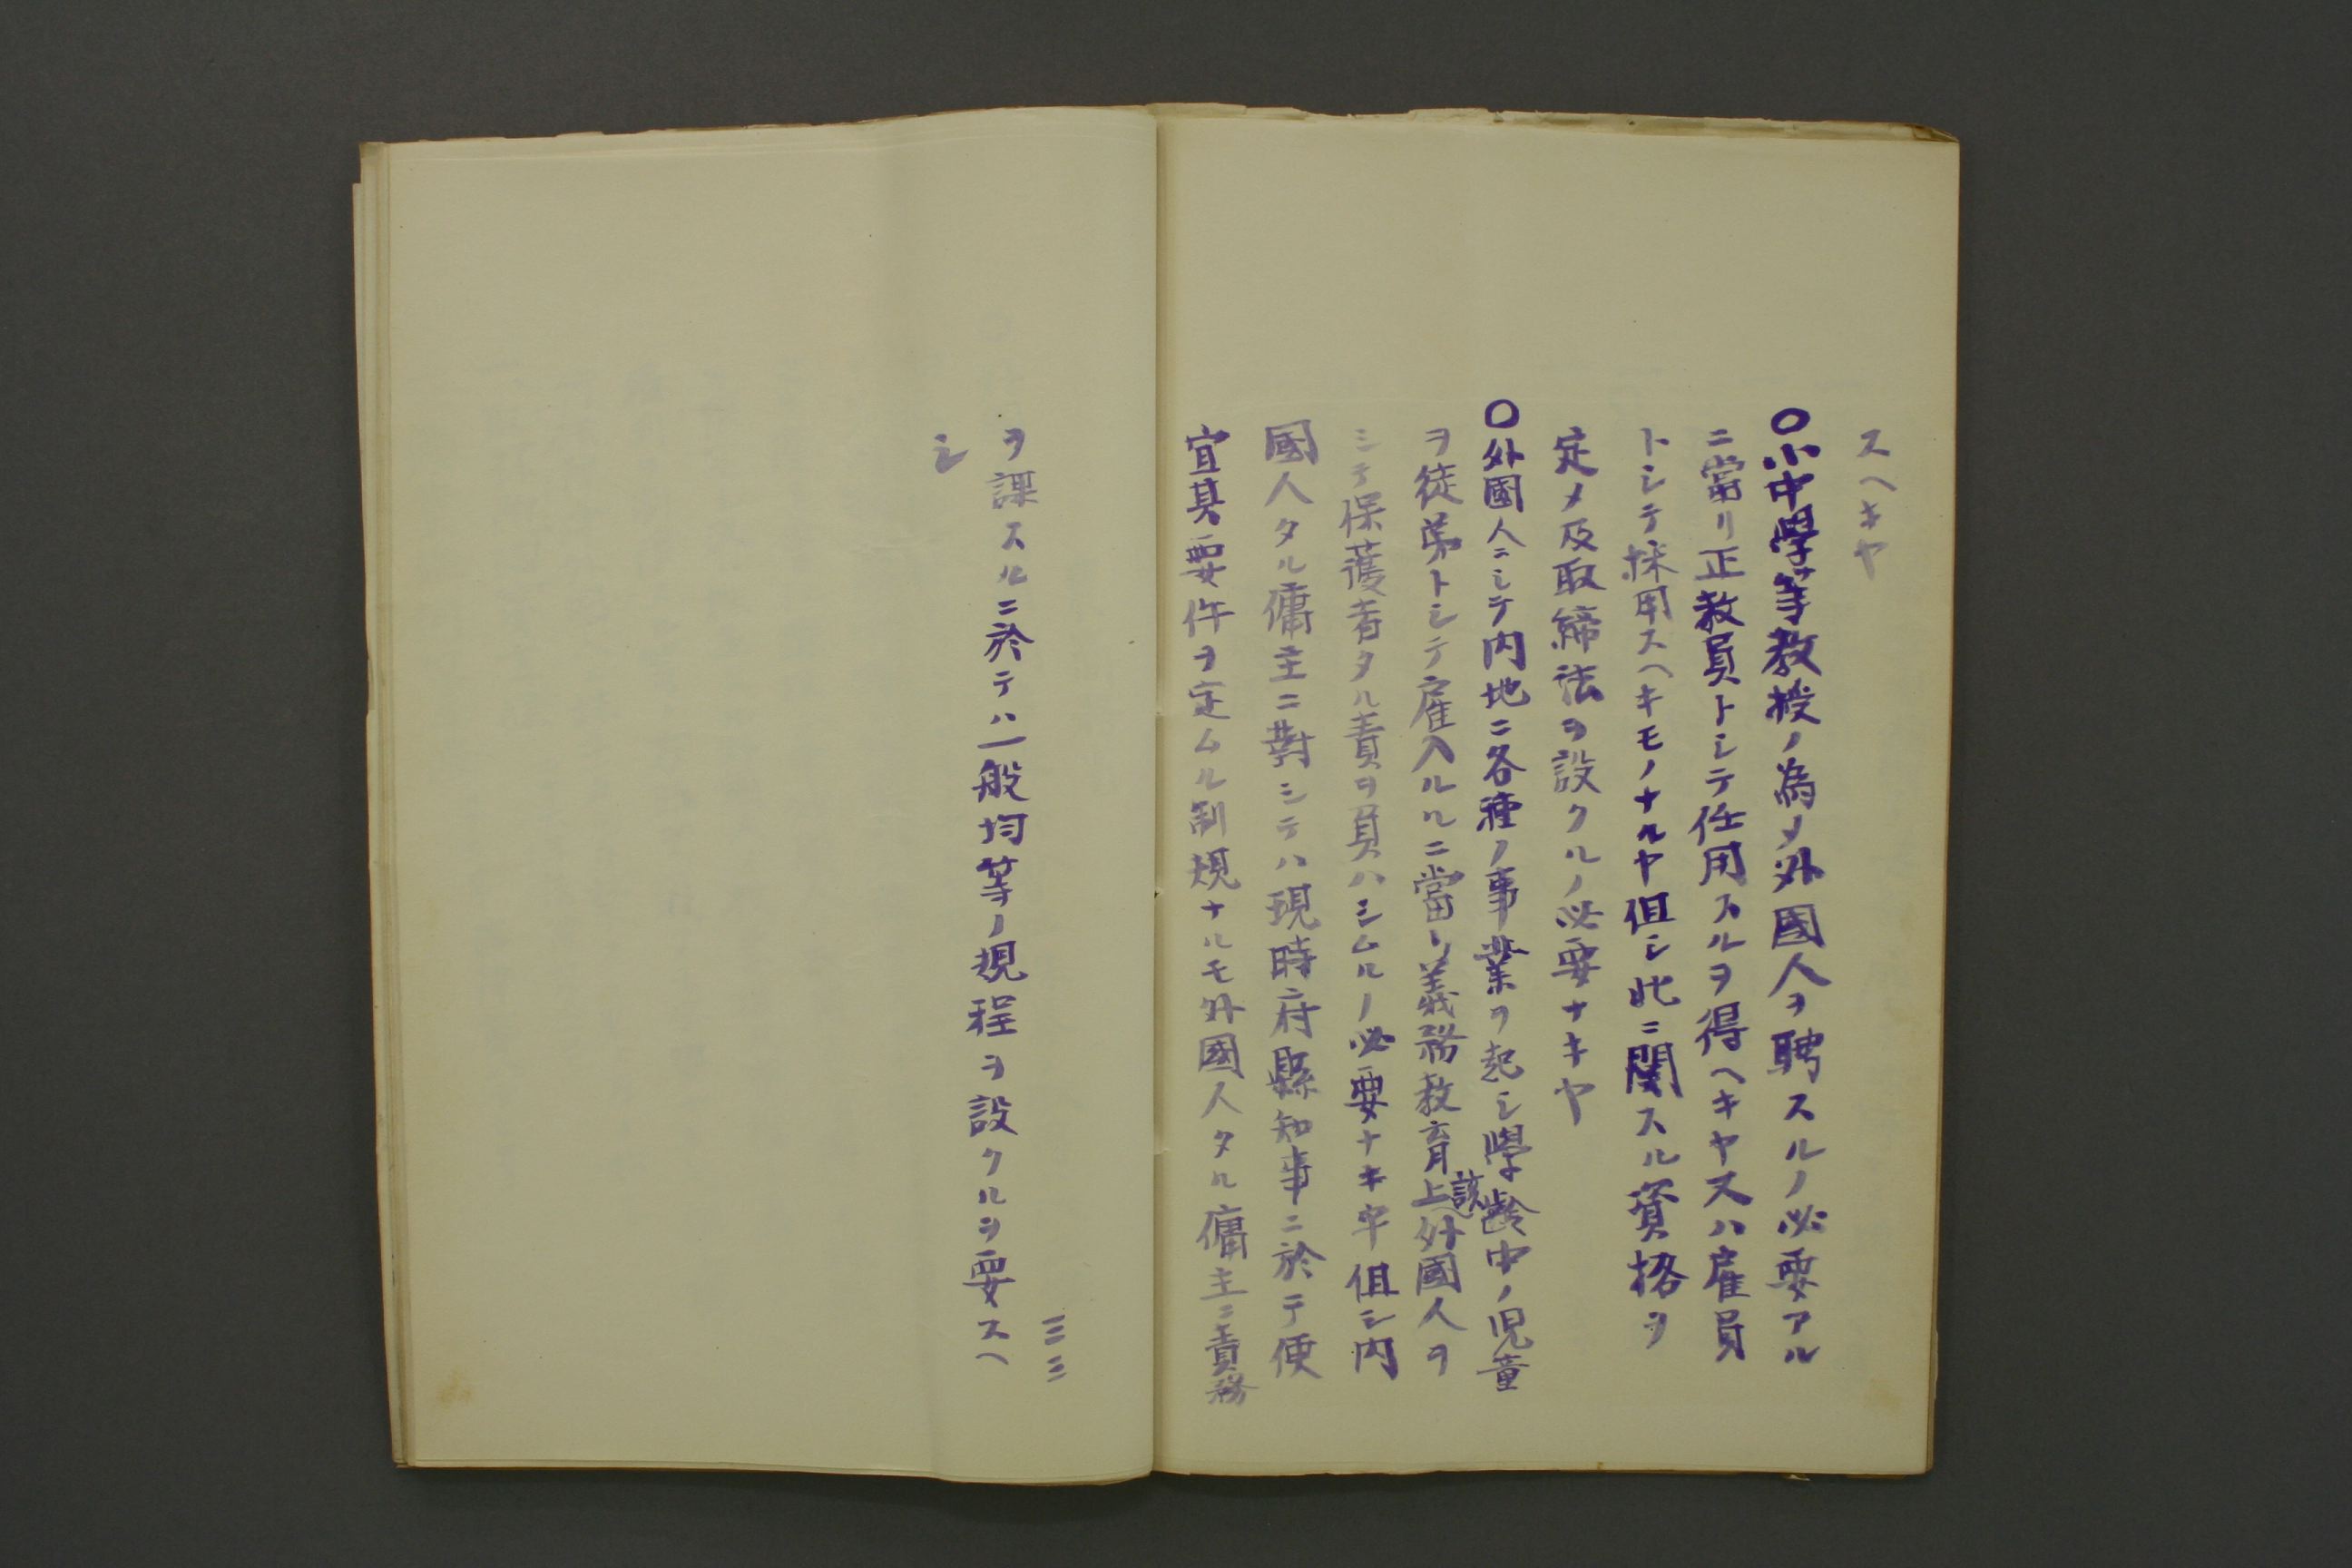 スヘキヤ
〇小中學等教授ノ為メ外國人ヲ聘スルノ必要アル
ニ當リ正教員トシテ任用スルヲ得ヘキヤ又ハ雇員
トシテ採用スヘキモノナルヤ但シ此ニ関スル資格ヲ
定メ及取締法ヲ設クルノ必要ナキヤ
〇外國人ニシテ内地ニ各種ノ事業ヲ起シ學齢中ノ児童
ヲ徒弟トシテ雇入ルルニ當リ義務教育上該外國人ヲ
シテ保護者タル責ヲ負ハシムルノ必要ナキヤ但シ内
國人タル傭主ニ對シテハ現時府縣知事ニ於テ便
宜其要件ヲ定ムル制規ナルモ外國人タル傭主ニ責務
ヲ課スルニ於テハ一般均等ノ規程ヲ設クルヲ要スヘ
シ
三三